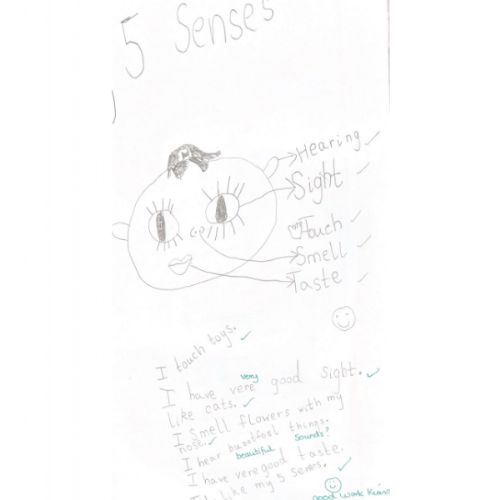 5 Senses
Hearing
Sight
Touch
Smell
Taste
I touch toys.
very
I have vere good sight.
like cats.
I smell flowers with my
nose.
I hear buootfool things.
beautiful sounds?
I have vere good taste.
like my 5 senses.
Good work